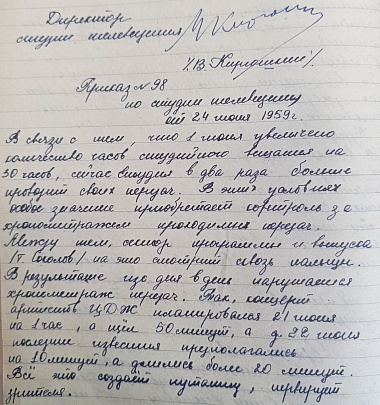 Директор
студии телевещения
/В. Кирошкин/.
Приказ № 98
по студии телевещения
от 24 июня 1959 г.
В связи с тем, что 1 июня увеличено
количество часов студийного вещания на
30 часов, сейчас студия в два раза больше
проводит своих передач. В этих условиях
особое значение приобретает контроль за
хронометражем проводимых передач.
Между тем, сектор программы и выпуска
/т. Гоголов/ на это смотрит сквозь пальцы.
В результате изо дня в день нарушается
хронометраж передач. Так, концерт
артистов ЦДЖ планировался 21 июня
на 1 час, а шёл 50 минут, а д. 22 июня
последние известия предполагались
на 10 минут, а длились более 20 минут.
Всё это создаёт путаницу, нервирует
зрителя.